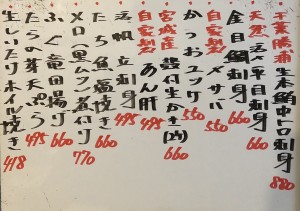 千葉勝浦 生本鮪中トロ刺身 880
天然活〆平目刺身
金目鯛刺身
自家製 〆サバ 550
かつおユッケ 550
宮城産 殻付生かき(2ケ) 660
自家製 あん肝 495
活帆立刺身 495
たち魚塩焼き 660
メロ(黒ムツ)煮付け 770
ふぐ竜田揚げ 660
たらの芽天ぷら 495
生しいたけホイル焼き 418